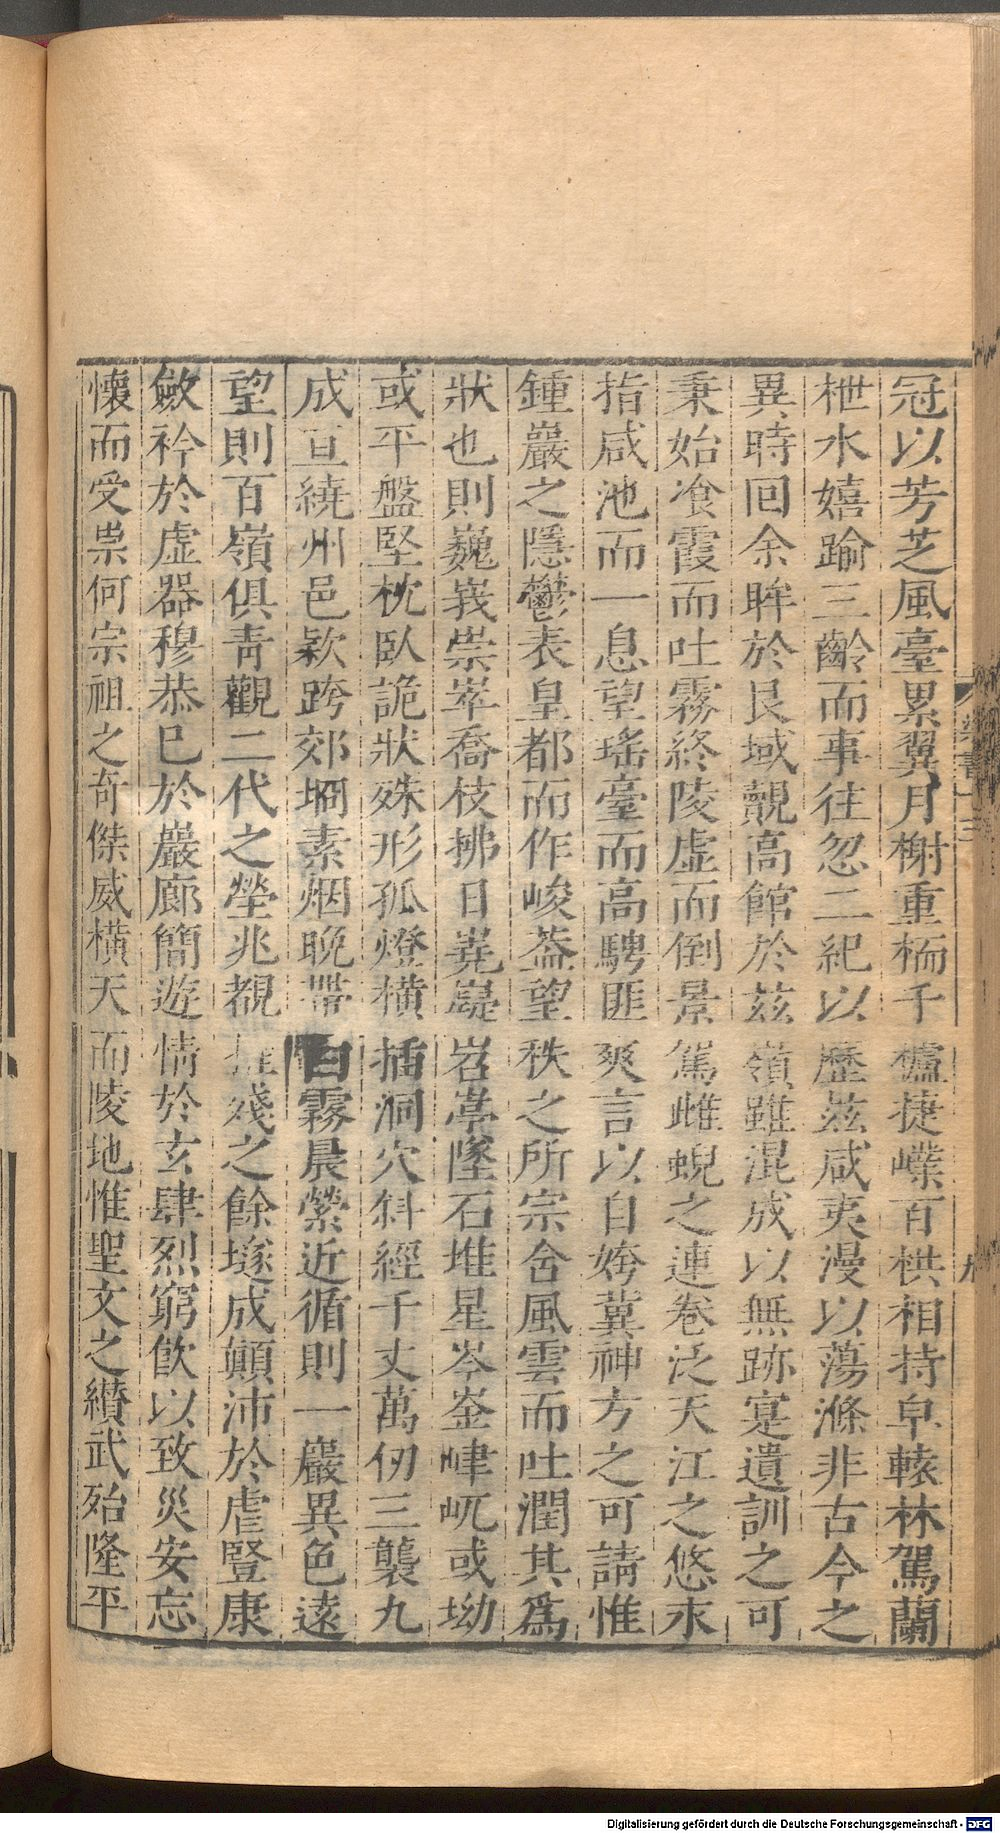 冠以芳芝風臺累翼月榭重栭千櫨捷嶫百栱相持皁轅林駕蘭
枻水嬉踰三齡而事往忽二紀以歷茲咸夷漫以蕩滌非古今之
異時回余眸於艮域覿高館於茲嶺雖混成以無跡寔遺訓之可
秉始飡霞而吐霧終陵虛而倒景駕雌蜺之連卷泛天江之悠永
指咸池而一息望瑤臺而高騁匪爽言以自姱冀神方之可請惟
鍾巖之隱鬱表皇都而作峻葢望秩之所宗含風雲而吐潤其爲
狀也則巍峩崇崒喬枝拂日嶤嶷岧嵉墜石堆星岑崟峍屼或坳
或平盤堅枕臥詭狀殊形孤燈橫插洞穴斜經千丈萬仞三襲九
成亘繞州邑欵跨郊坰素烟晚帶白霧晨縈近循則一巖異色遠
望則百嶺俱靑觀二代之塋兆覩摧殘之餘墜成顚沛於虐豎康
斂衿於虛器穆恭已於巖廊簡遊情於玄肆烈窮飮以致災安忘
懷而受祟何宗祖之奇傑威橫天而陵地惟聖文之纉武殆隆平
梁書十三
九
Digitalisierung gefördert durch die Deutsche Forschungsgemeinschaft - DFG